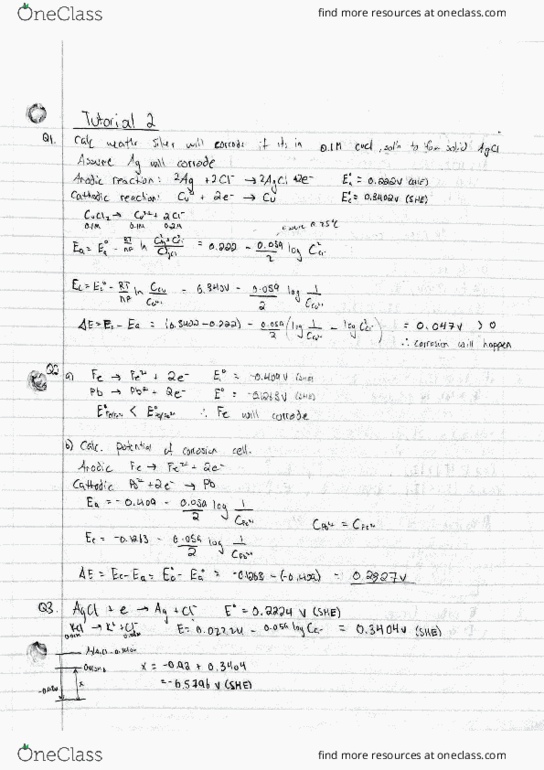 OneClass find more resources at oneclass.com
Tutorial 2
Q1. Calc silver will corrode if its in 0.1M solid AgCl
Assume Ag will corrode
Anodic reaction: 2Ag + 2Cl⁻ → 2AgCl + 2e⁻ Ea° = 0.222V (SHE)
Cathodic reaction: Cu²⁺ + 2e⁻ → Cu Ec° = 0.3402V (SHE)
CuCl₂ → Cu²⁺ + 2Cl⁻
0.1M 0.1M 0.2M
Ea = Ea° - RT/nF ln = 0.222 - 0.059/2 log C²Cl⁻
Ec = Ec° - RT/nF ln CCu/CCu²⁺ - 0.059/2 log 1/CCu²⁺
ΔE = Ec - Ea = (0.3402 - 0.222) - 0.059/2 (log 1/CCu²⁺ - log C²Cl⁻) = 0.047V > 0
∴ corrosion will happen
Q2 a) Fe → Fe²⁺ + 2e⁻ E° = -0.409V (SHE)
Pb → Pb²⁺ + 2e⁻ E° = -0.1263V (SHE)
∴ Fe will corrode
b) Calc. potential of corrosion cell.
Anodic Fe → Fe²⁺ + 2e⁻
Cathodic Pb²⁺ + 2e⁻ → Pb
Ea = -0.409 - 0.059/2 log 1/CFe²⁺
CPb²⁺ = CFe²⁺
Ec = -0.1263 - 0.059/2 log 1/CPb²⁺
ΔE = Ec - Ea = Ec° - Ea° = -0.1263 - (-0.409) = 0.2827V
Q3. AgCl + e → Ag + Cl⁻ E° = 0.2224 V (SHE)
KCl → K⁺ + Cl⁻ - 0.059 log CCl⁻ = 0.3404V (SHE)
x = + 0.3404
V (SHE)
x
OneClass find more resources at oneclass.com